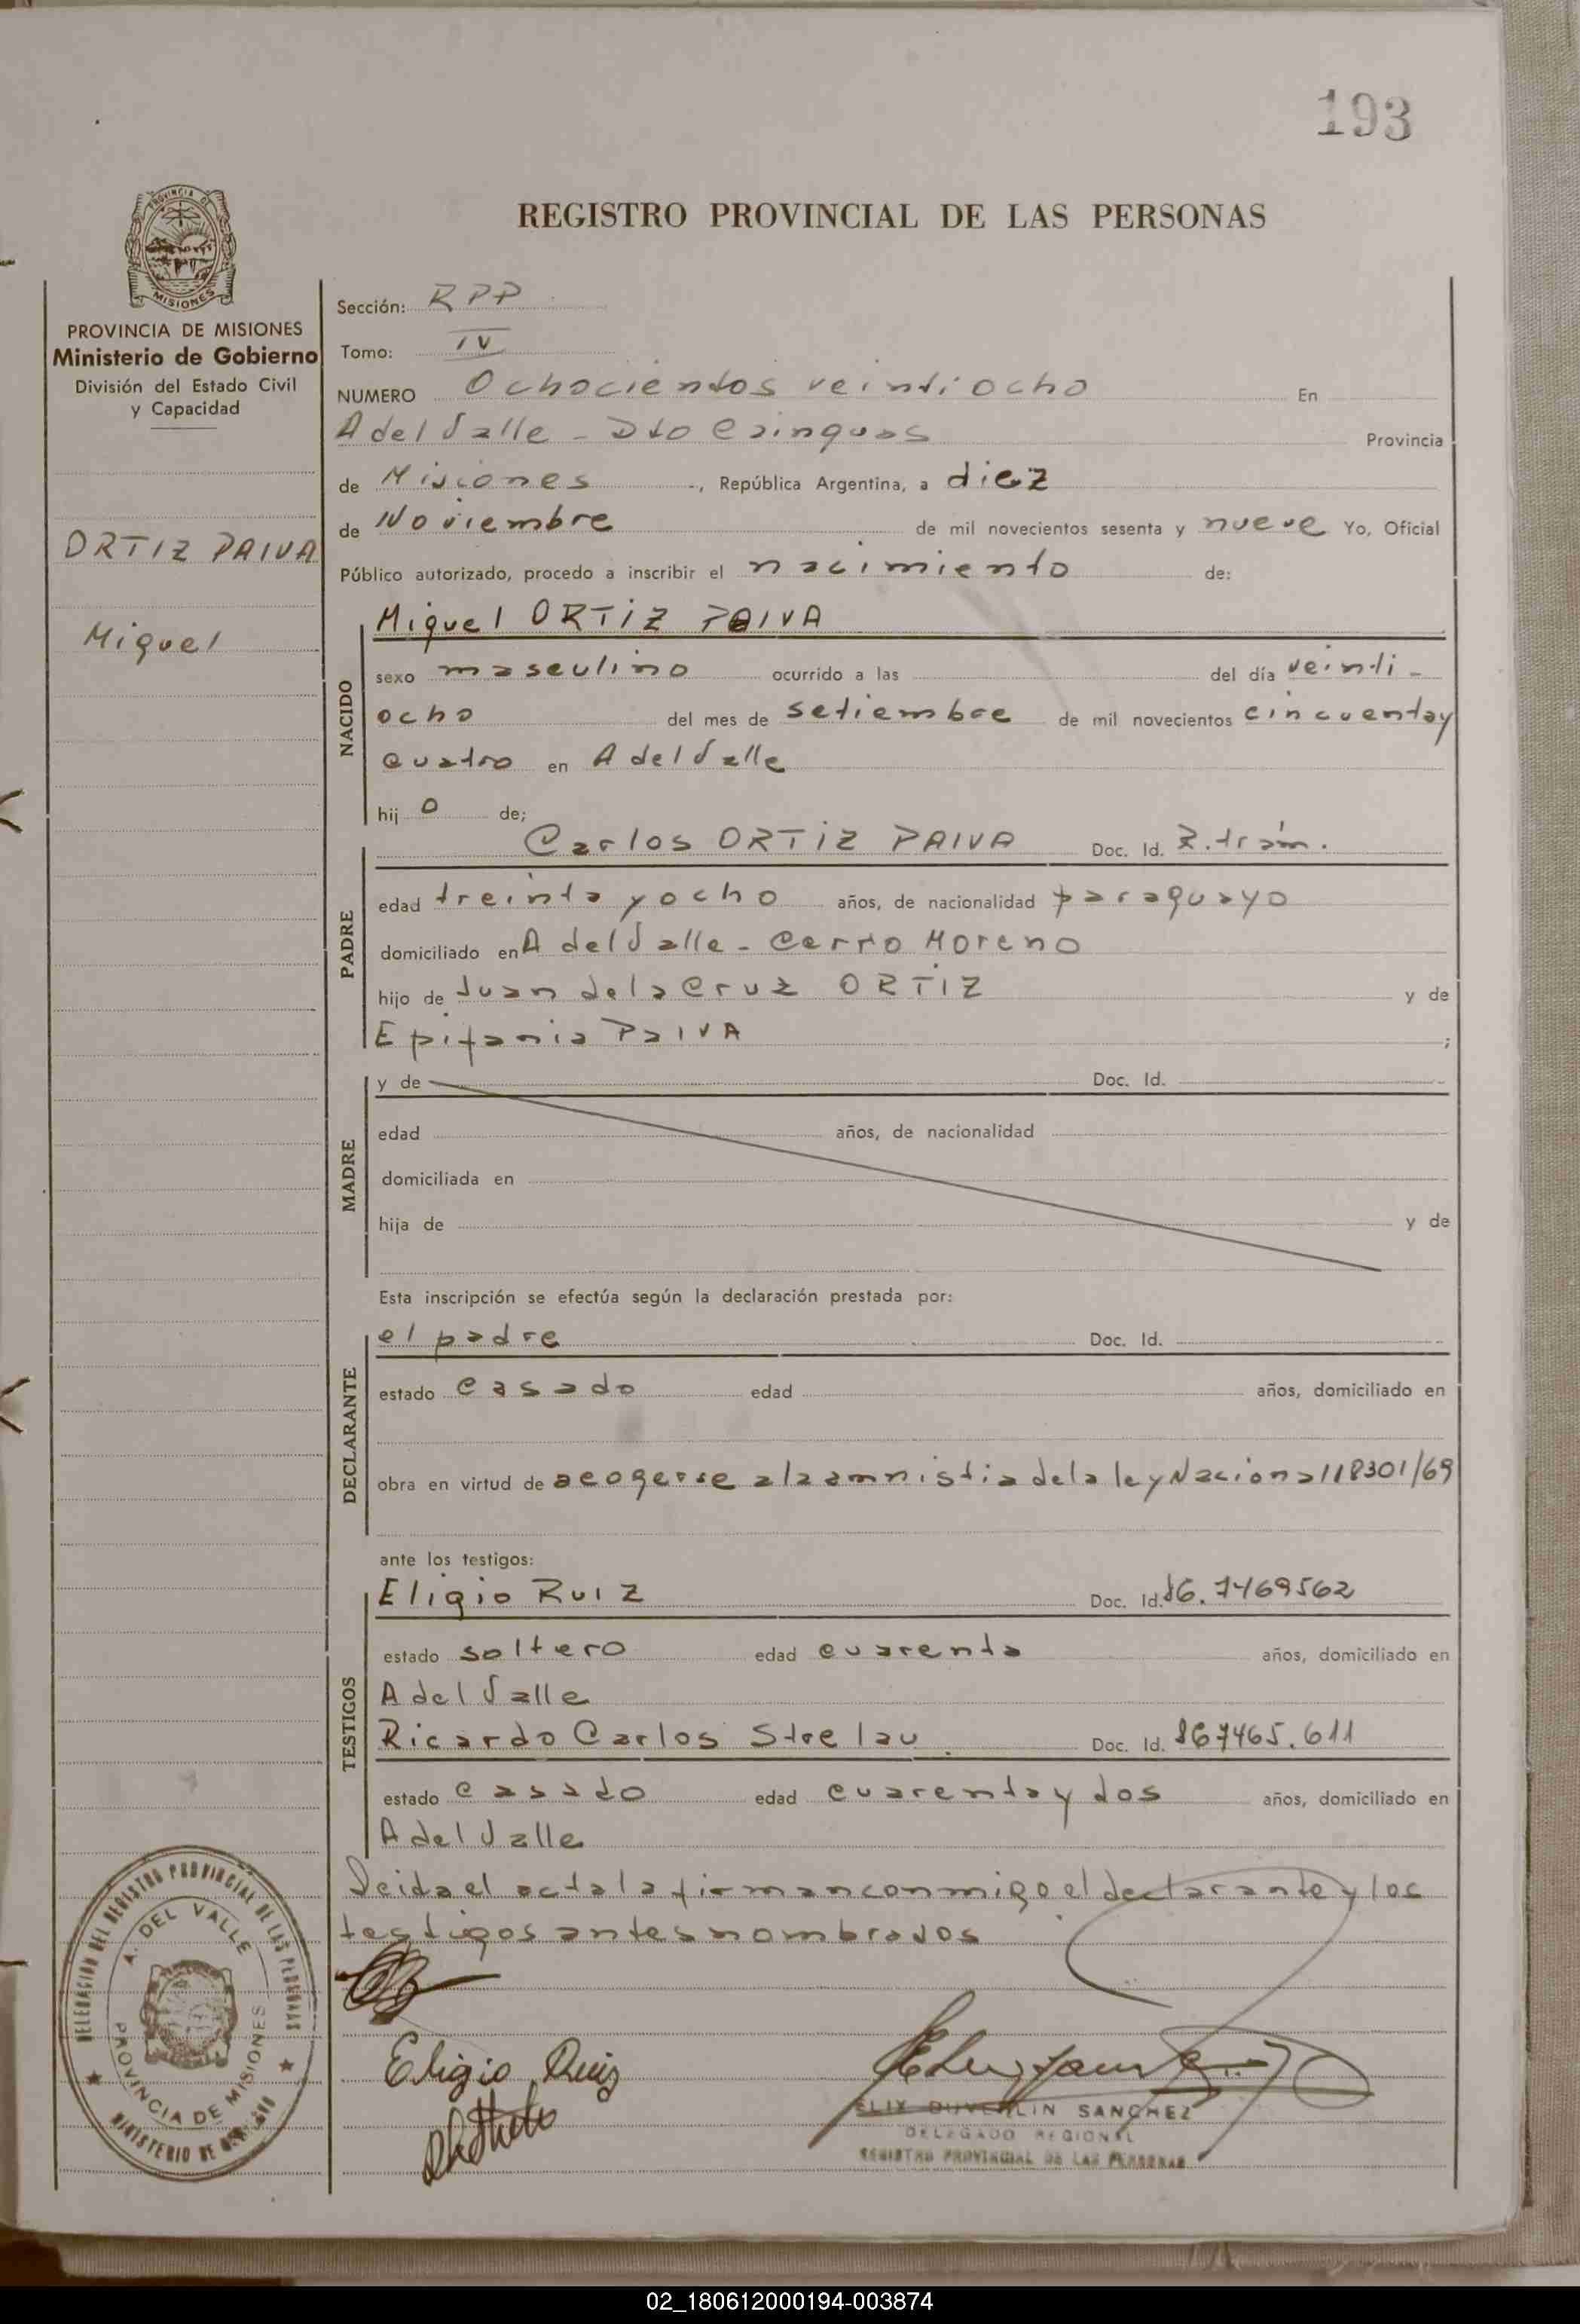 193
REGISTRO PROVINCIAL DE LAS PERSONAS
PROVINCIA DE MISIONES
PROVINCIA DE MISIONES
Ministerio de Gobierno
División del Estado Civil
y Capacidad
ORTIZ PAIVA
Miguel
Sección: RPP
Tomo: IV
NUMERO Ochocientos veintiocho En
A del Valle - Dto Cainguas Provincia
de Misiones, República Argentina, a diez
de Noviembre de mil novecientos sesenta y nueve Yo, Oficial
Público autorizado, procedo a inscribir el nacimiento de:
NACIDO
Miguel ORTIZ PAIVA
sexo masculino ocurrido a las del día veinti-
ocho del mes de setiembre de mil novecientos cincuenta y
cuatro en A del Valle
hij o de;
PADRE
Carlos ORTIZ PAIVA Doc. Id. R. trám.
edad treinta y ocho años, de nacionalidad paraguayo
domiciliado en A del Valle - Cerro Moreno
hijo de Juan de la Cruz ORTIZ y de
Epifania PaIVA ;
MADRE
y de Doc. Id.
edad años, de nacionalidad
domiciliada en
hija de y de
Esta inscripción se efectúa según la declaración prestada por:
DECLARANTE
el padre Doc. Id.
estado casado edad años, domiciliado en
obra en virtud de acogerse a la amnistia de la ley Nacional 18301/69
ante los testigos:
TESTIGOS
Eligio RUIZ Doc. Id. 7469562
estado soltero edad cuarenta años, domiciliado en
A del Valle
Ricardo Carlos Strelau Doc. Id. 7465.611
estado casado edad cuarenta y dos años, domiciliado en
A del Valle
Leida el acta la firman conmigo el declarante y los
testigos antes nombrados
Eligio Ruiz
DELEGACION DEL REGISTRO PROVINCIAL DE LAS PERSONAS
A. DEL VALLE
PROVINCIA DE MISIONES
MINISTERIO DE GOBIERNO
SANCHEZ
DELEGADO REGIONAL
REGISTRO PROVINCIAL DE LAS PERSONAS
02_180612000194-003874